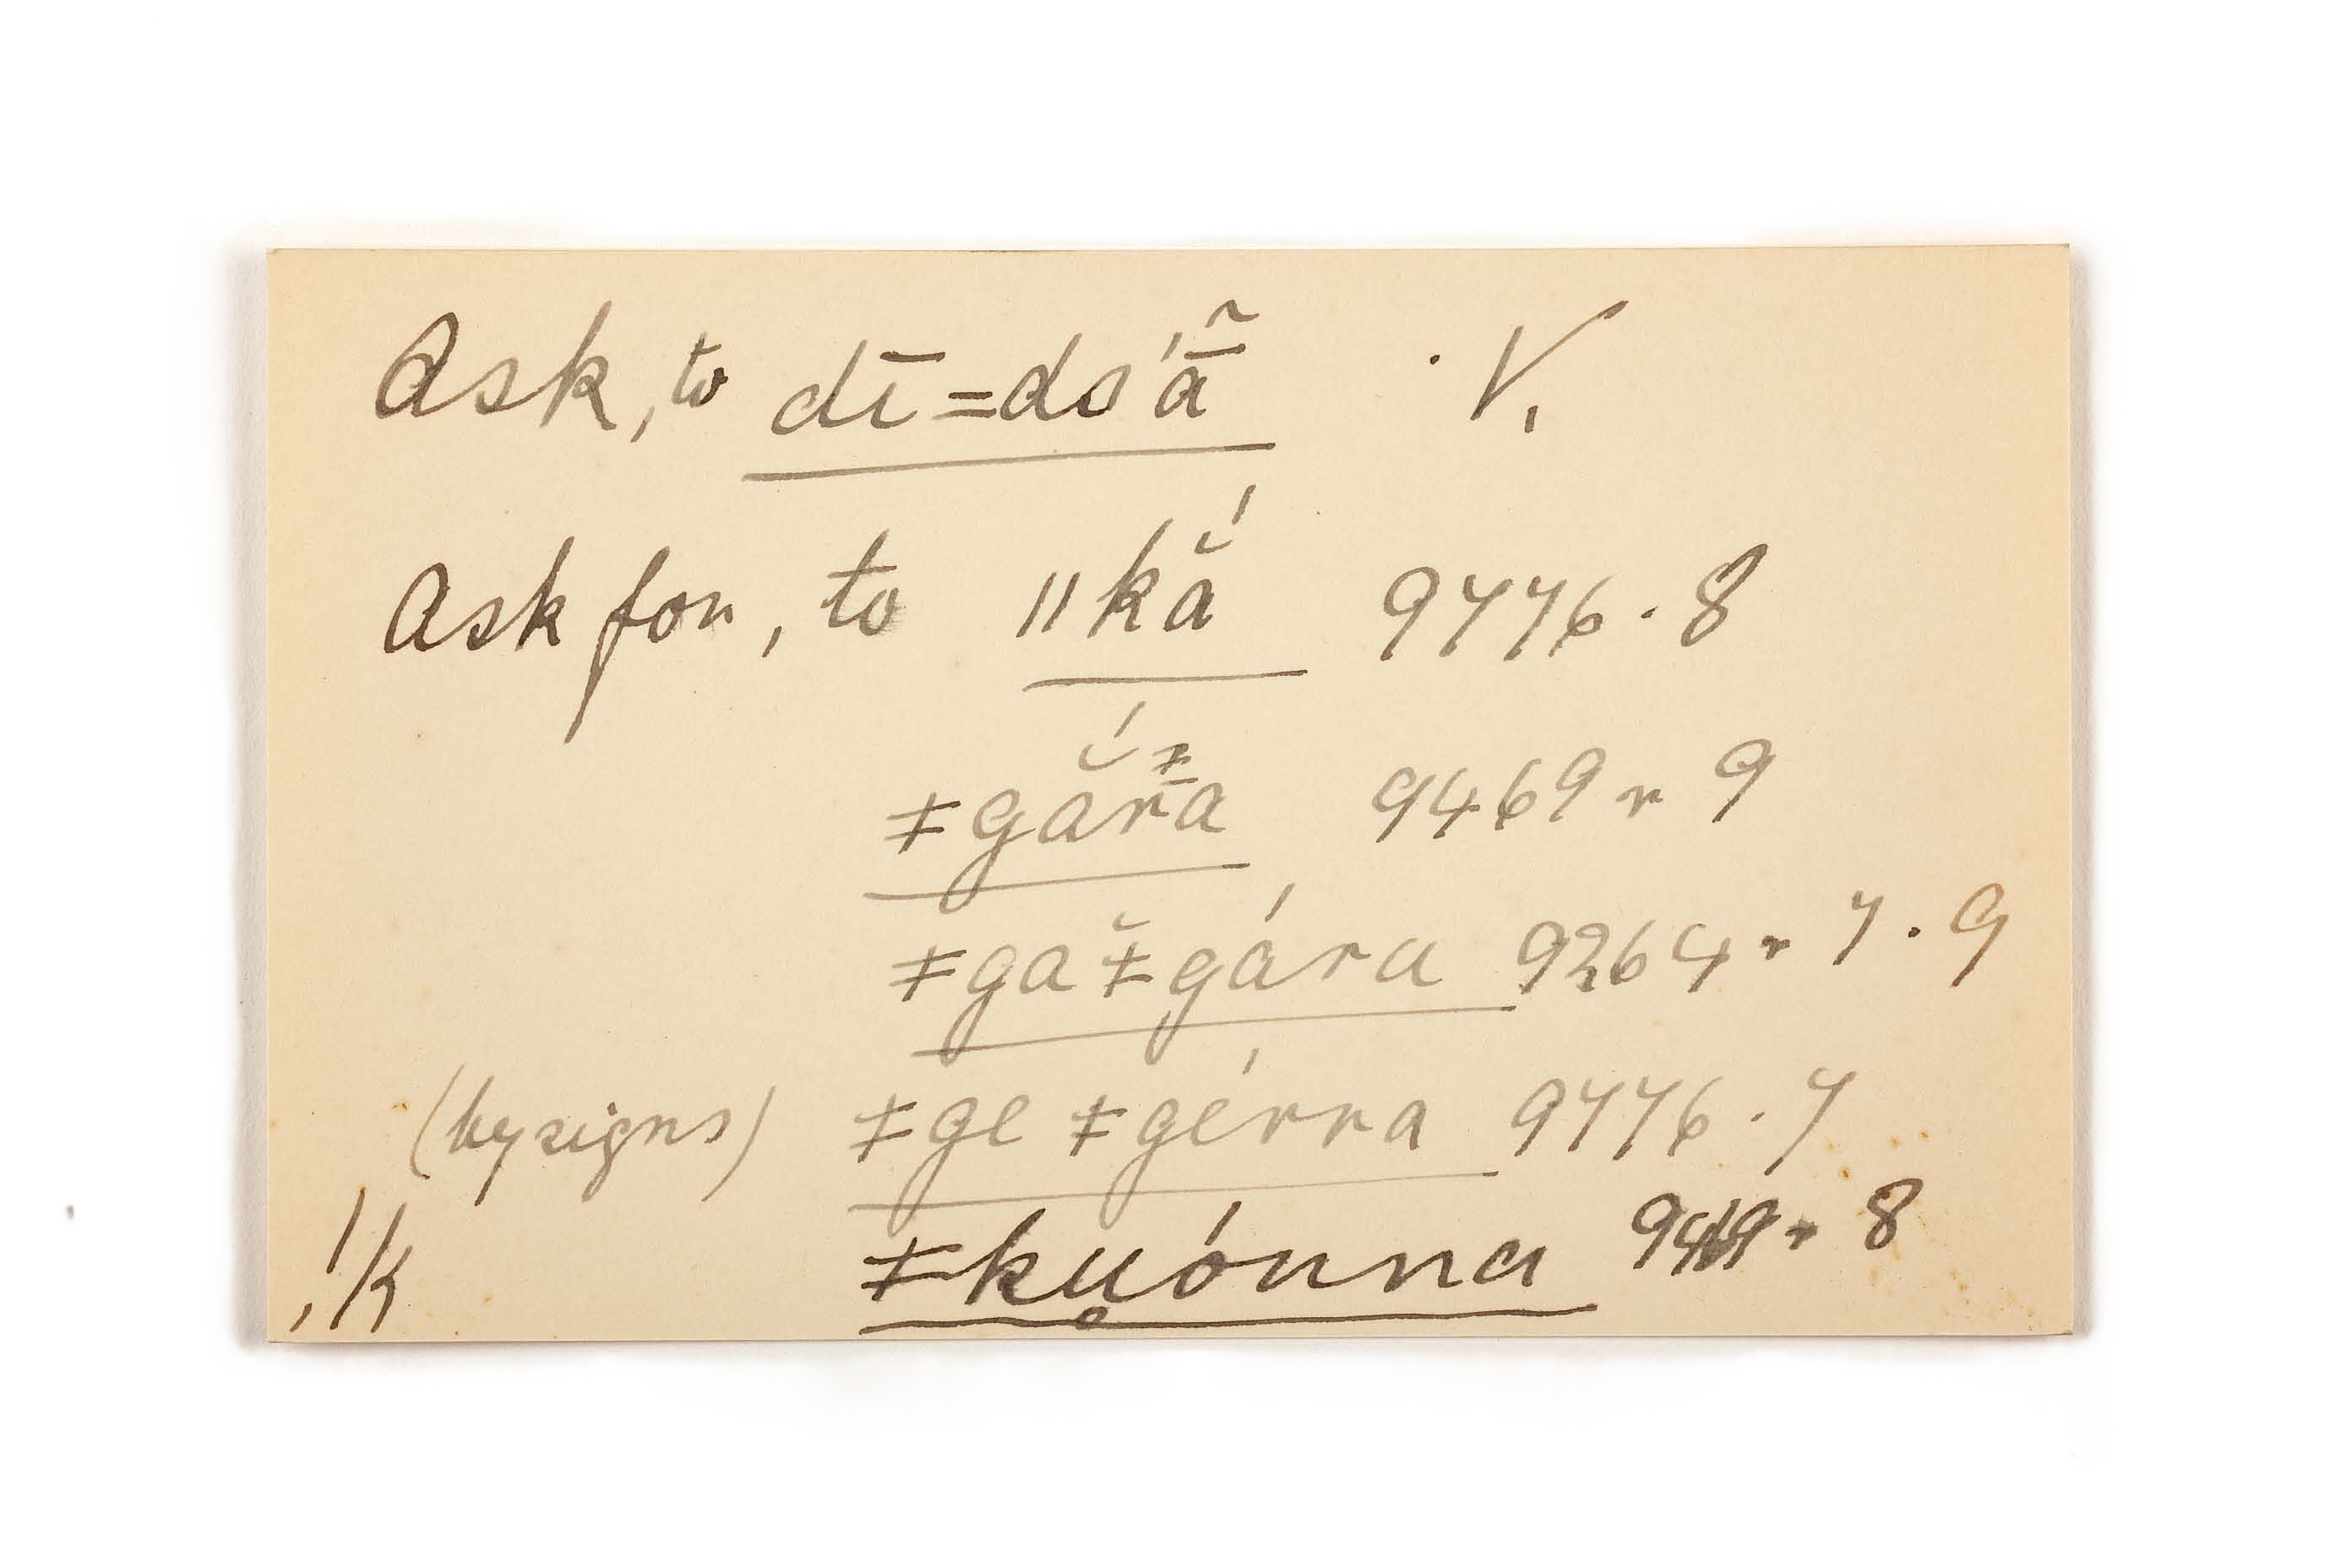 Ask, to dī=do'ā̃ · V.
Ask for, to ǁkắ 9776·8
ǂgắr̄a 9469 r 9
ǂgaˇǂgára 9264 r 7·9
(by signs) ǂge ǂgérra 9776·7
!k ǂku̥ónna r 8